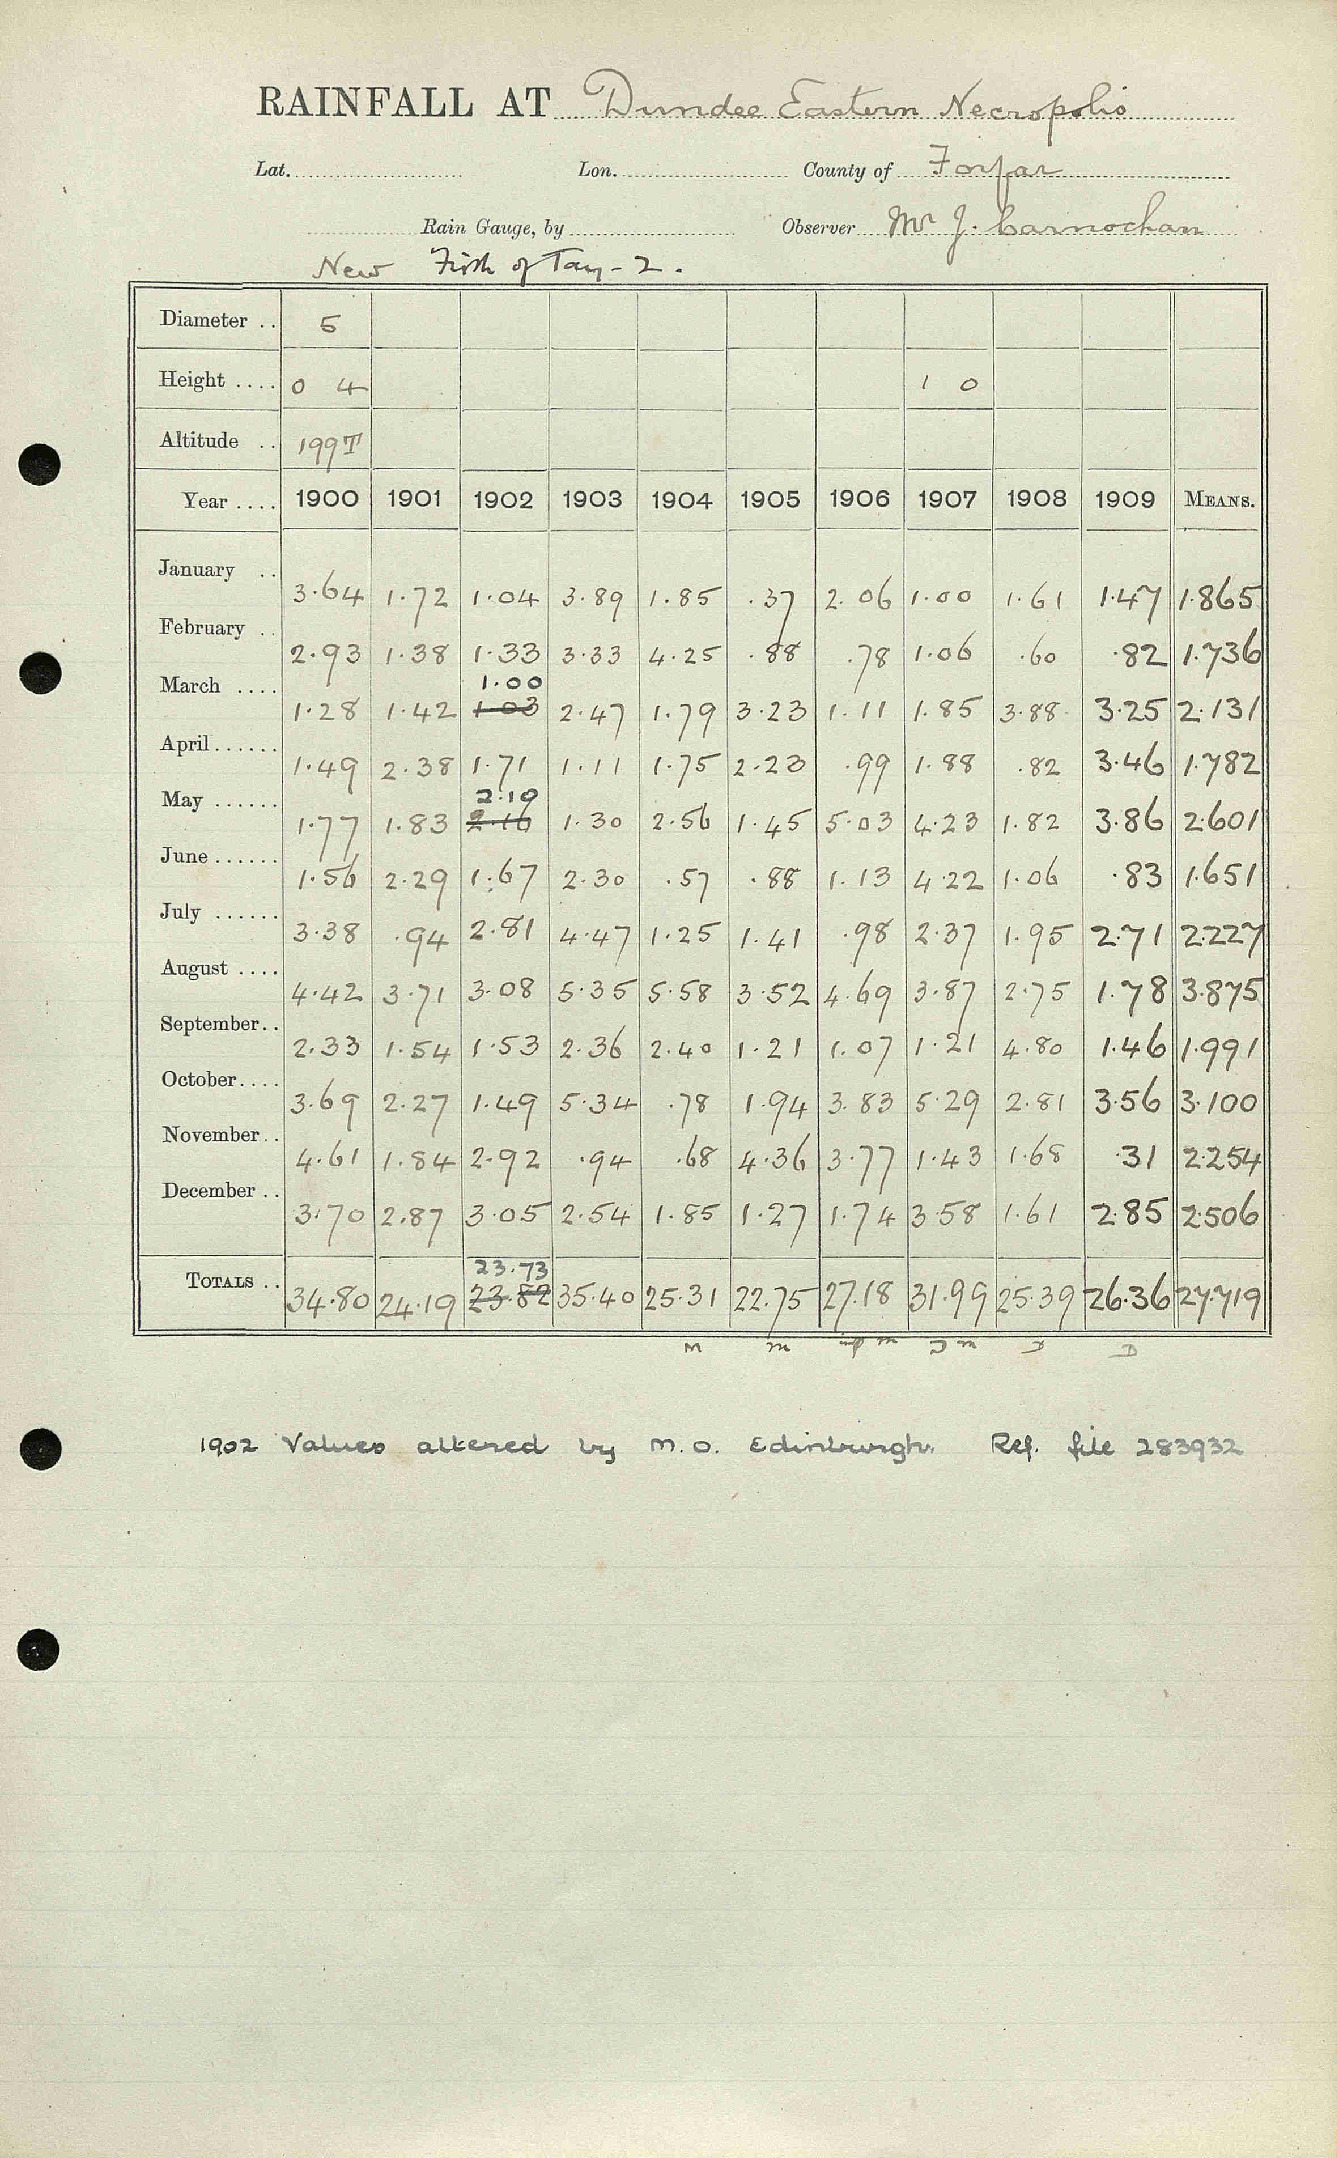 RAINFALL AT Dundee Eastern Necropolis
Lat. Lon. County of Forfar
Rain Gauge, by Observer Mr J. Carnochan
New Firth of Tay - 2.
Diameter .. 5
Height .... 0 4 1 0
Altitude .. 199T
Year .... 1900 1901 1902 1903 1904 1905 1906 1907 1908 1909 MEANS.
January .. 3.64 1.72 1.04 3.89 1.85 .37 2.06 1.00 1.61 1.47 1.865
February .. 2.93 1.38 1.33 3.33 4.25 .88 .78 1.06 .60 .82 1.736
1.00
March .... 1.28 1.42 1.03 2.47 1.79 3.23 1.11 1.85 3.88 3.25 2.131
April...... 1.49 2.38 1.71 1.11 1.75 2.23 .99 1.88 .82 3.46 1.782
2.10
May ...... 1.77 1.83 2.16 1.30 2.56 1.45 5.03 4.23 1.82 3.86 2.601
June ...... 1.56 2.29 1.67 2.30 .57 .88 1.13 4.22 1.06 .83 1.651
July ...... 3.38 .94 2.81 4.47 1.25 1.41 .98 2.37 1.95 2.71 2.227
August .... 4.42 3.71 3.08 5.35 5.58 3.52 4.69 3.87 2.75 1.78 3.875
September.. 2.33 1.54 1.53 2.36 2.40 1.21 1.07 1.21 4.80 1.46 1.991
October.... 3.69 2.27 1.49 5.34 .78 1.94 3.83 5.29 2.81 3.56 3.100
November.. 4.61 1.84 2.92 .94 .68 4.36 3.77 1.43 1.68 .31 2.254
December .. 3.70 2.87 3.05 2.54 1.85 1.27 1.74 3.58 1.61 2.85 2.506
23.73
TOTALS .. 34.80 24.19 23.82 35.40 25.31 22.75 27.18 31.99 25.39 26.36 27.719
M m m J m D
1902 Values altered by M.O. Edinburgh. Ref. file 283932